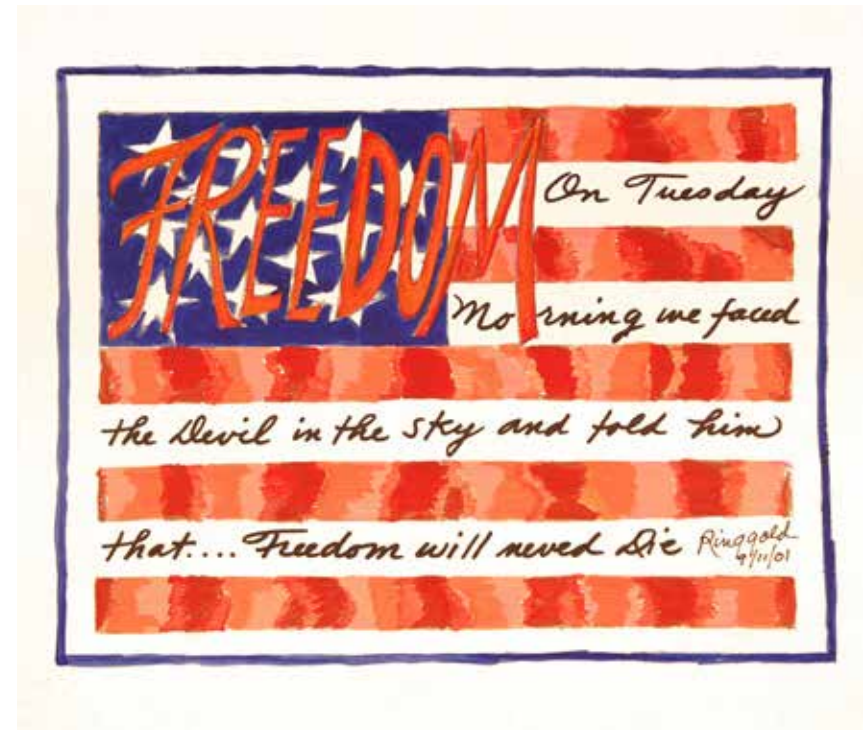 FREEDOM
On Tuesday
Morning we faced
the Devil in the Sky and told him
that.... Freedom will neved Die
Ringgold
9/11/01